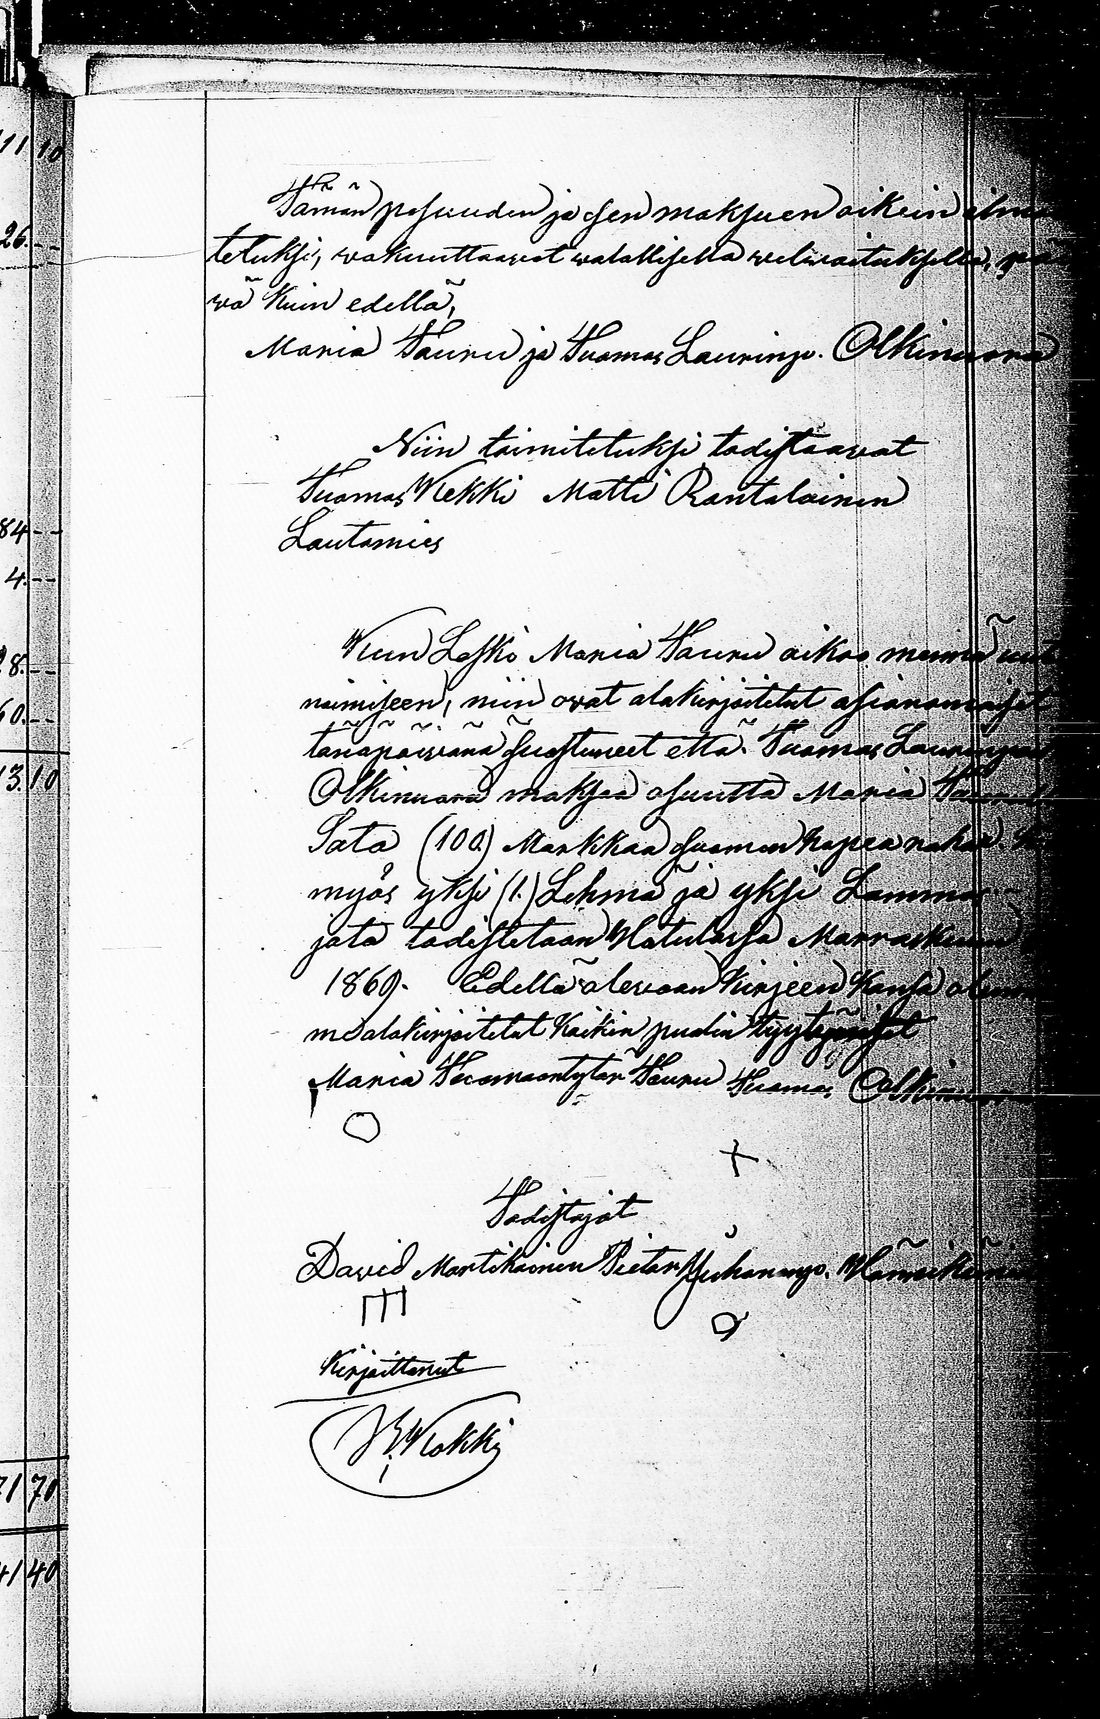 11 10
Tämän pesuuden ja sen maksuen oikein ilmo
26. --
tetuksi, wakuuttaavat walallisella welwoituksella, päi
wä Kuin edellä,
Maria Tauru ja Tuomas Laurinp. Olkinuora
Niin toimitetuksi todistaavat
Tuomas Kekki Matti Rantalainen
84 --
Lautamies
4. --
Kun Leski Maria Tauru aikoo mennä uut
8. --
naimiseen, niin ovat alakirjoitetut asianomaiset
60. --
tänäpäivänä suostuneet että Tuomas Laurinpoi
13. 10
Olkinuora maksaa osuutta Maria Taurul
Sata (100) Markkaa suomen hopea rahaa
myös yksi (1.) Lehmä ja yksi Lammas
jota todistetaan Hatulassa Marraskuun
1869. Edellä olevaan Kirjeen Kansa olem
me alakirjoitetut Kaikin puolin tyytyväiset
Maria Tuomaantytär Tauru Tuomas Olkinuora
Todistajat
David Martikainen Pietar Juhananp. Hämeikäinen
Kirjoittanut
Klokki
71 70
41 40